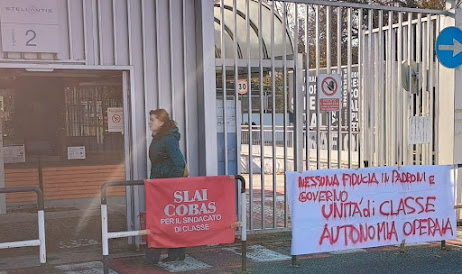 STELLANTIS
2
30
SLAI
COBAS
PER IL SINDACATO
DI CLASSE
NESSUNA FIDUCIA IN PADRONI E
GOVERNO
UNITA di CLASSE
AUTONOMIA OPERAIA